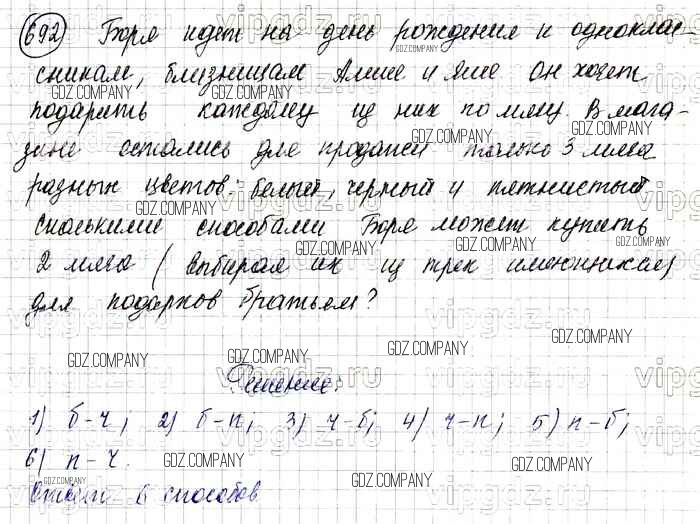 692) Боря идет на день рождения к однокла-
сникам, близнецам Алеше и Яше Он хочет
подарить каждому из них по мячу. В мага-
зине остались для продажи только 3 мяча
разных цветов: белый, черный и пятнистый
сколькими способами Боря может купить
2 мяча (выбирая их из трех имеющихся)
для подарков братьям?
Решение:
1) б-ч; 2) б-п; 3) ч-б; 4) ч-п; 5) п-б;
6) п-ч.
Ответ: 6 способов
GDZ.COMPANY
vipgdz.ru